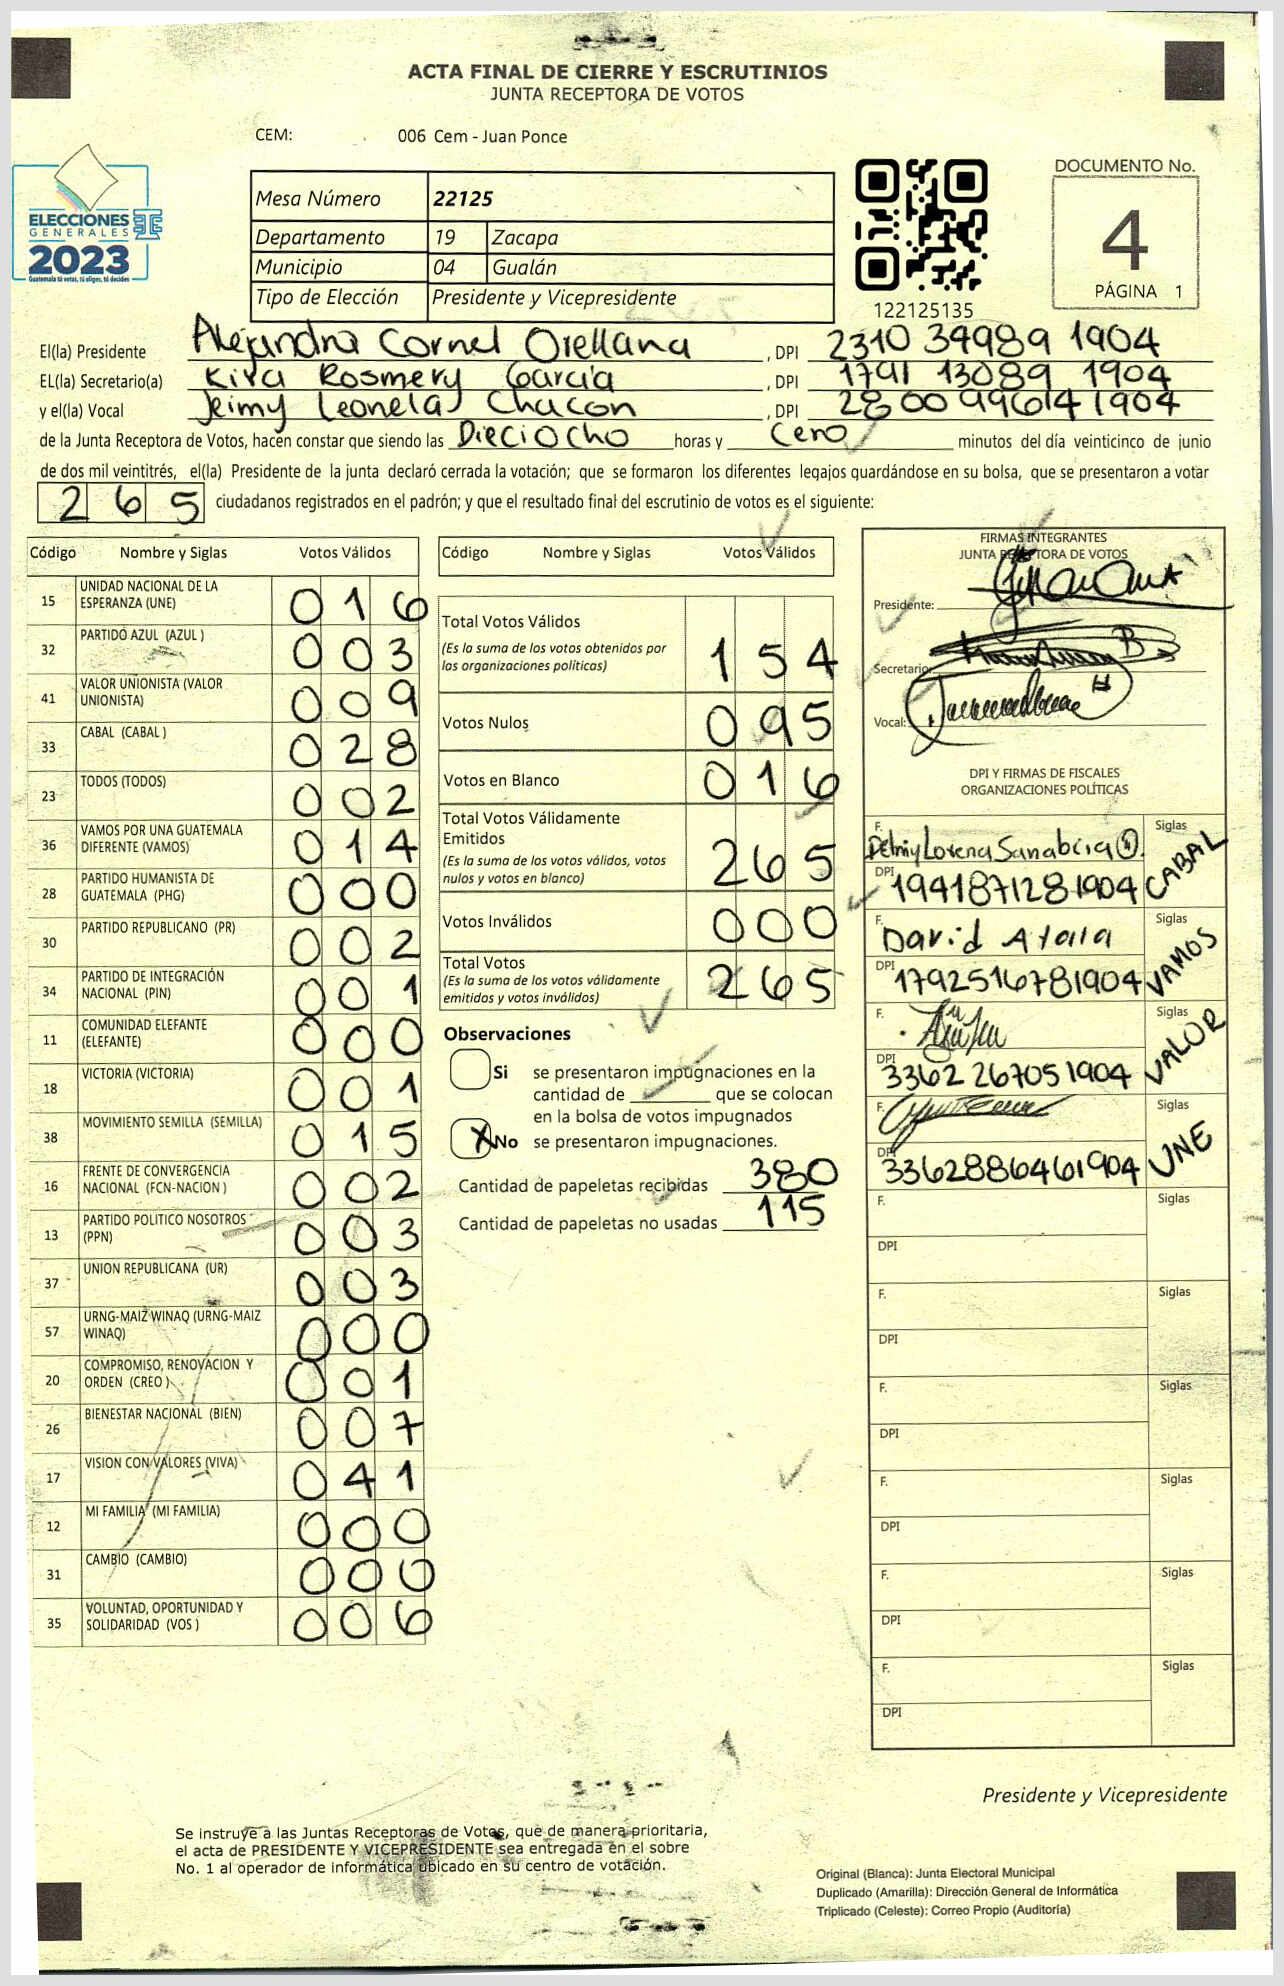 ACTA FINAL DE CIERRE Y ESCRUTINIOS
JUNTA RECEPTORA DE VOTOS
CEM: 006 Cem - Juan Ponce
ELECCIONES
GENERALES
2023
Guatemala tú votas, tú eliges, tú decides
Mesa Número 22125
Departamento 19 Zacapa
Municipio 04 Gualán
Tipo de Elección Presidente y Vicepresidente
122125135
DOCUMENTO No.
4
PÁGINA 1
El(la) Presidente Alejandra Cornel Orellana, DPI 2310 34989 1904
EL(la) Secretario(a) Rosmery García, DPI 1791 13089 1904
y el(la) Vocal Jeimy Leonela Chacon, DPI 2800996141904
de la Junta Receptora de Votos, hacen constar que siendo las Dieciocho horas y Cero minutos del día veinticinco de junio
de dos mil veintitrés, el(la) Presidente de la junta declaró cerrada la votación; que se formaron los diferentes legajos quardándose en su bolsa, que se presentaron a votar
265 ciudadanos registrados en el padrón; y que el resultado final del escrutinio de votos es el siguiente:
Código Nombre y Siglas Votos Válidos
15 UNIDAD NACIONAL DE LA ESPERANZA (UNE) 016
32 PARTIDO AZUL (AZUL ) 003
41 VALOR UNIONISTA (VALOR UNIONISTA) 009
33 CABAL (CABAL ) 028
23 TODOS (TODOS) 002
36 VAMOS POR UNA GUATEMALA DIFERENTE (VAMOS) 014
28 PARTIDO HUMANISTA DE GUATEMALA (PHG) 000
30 PARTIDO REPUBLICANO (PR) 002
34 PARTIDO DE INTEGRACIÓN NACIONAL (PIN) 001
11 COMUNIDAD ELEFANTE (ELEFANTE) 000
18 VICTORIA (VICTORIA) 001
38 MOVIMIENTO SEMILLA (SEMILLA) 015
16 FRENTE DE CONVERGENCIA NACIONAL (FCN-NACION ) 002
13 PARTIDO POLITICO NOSOTROS (PPN) 003
37 UNION REPUBLICANA (UR) 003
57 URNG-MAIZ WINAQ (URNG-MAIZ WINAQ) 000
20 COMPROMISO, RENOVACION Y ORDEN (CREO ) 001
26 BIENESTAR NACIONAL (BIEN) 007
17 VISION CON VALORES (VIVA) 041
12 MI FAMILIA (MI FAMILIA) 000
31 CAMBIO (CAMBIO) 000
35 VOLUNTAD, OPORTUNIDAD Y SOLIDARIDAD (VOS ) 006
Código Nombre y Siglas Votos Válidos
Total Votos Válidos
(Es la suma de los votos obtenidos por
las organizaciones políticas) 154
Votos Nulos 095
Votos en Blanco 016
Total Votos Válidamente
Emitidos
(Es la suma de los votos válidos, votos
nulos y votos en blanco) 265
Votos Inválidos 000
Total Votos
(Es la suma de los votos válidamente
emitidos y votos inválidos) 265
Observaciones
Si se presentaron impugnaciones en la
cantidad de ________ que se colocan
en la bolsa de votos impugnados
X No se presentaron impugnaciones.
Cantidad de papeletas recibidas 380
Cantidad de papeletas no usadas 115
FIRMAS INTEGRANTES
JUNTA RECEPTORA DE VOTOS
Presidente:
Secretario:
Vocal:
DPI Y FIRMAS DE FISCALES
ORGANIZACIONES POLÍTICAS
F. Lorena Sanabria Siglas
DPI 1941871281904 CABAL
F. David Ayala Siglas
DPI 1792516781904 VAMOS
F. Siglas
DPI 3362 267051904 VALOR
F. Siglas
DPI 3362886461904 UNE
F. Siglas
DPI
F. Siglas
DPI
F. Siglas
DPI
F. Siglas
DPI
F. Siglas
DPI
F. Siglas
DPI
Presidente y Vicepresidente
Se instruye a las Juntas Receptoras de Votos, que de manera prioritaria,
el acta de PRESIDENTE Y VICEPRESIDENTE sea entregada en el sobre
No. 1 al operador de informática ubicado en su centro de votación.
Original (Blanca): Junta Electoral Municipal
Duplicado (Amarilla): Dirección General de Informática
Triplicado (Celeste): Correo Propio (Auditoría)